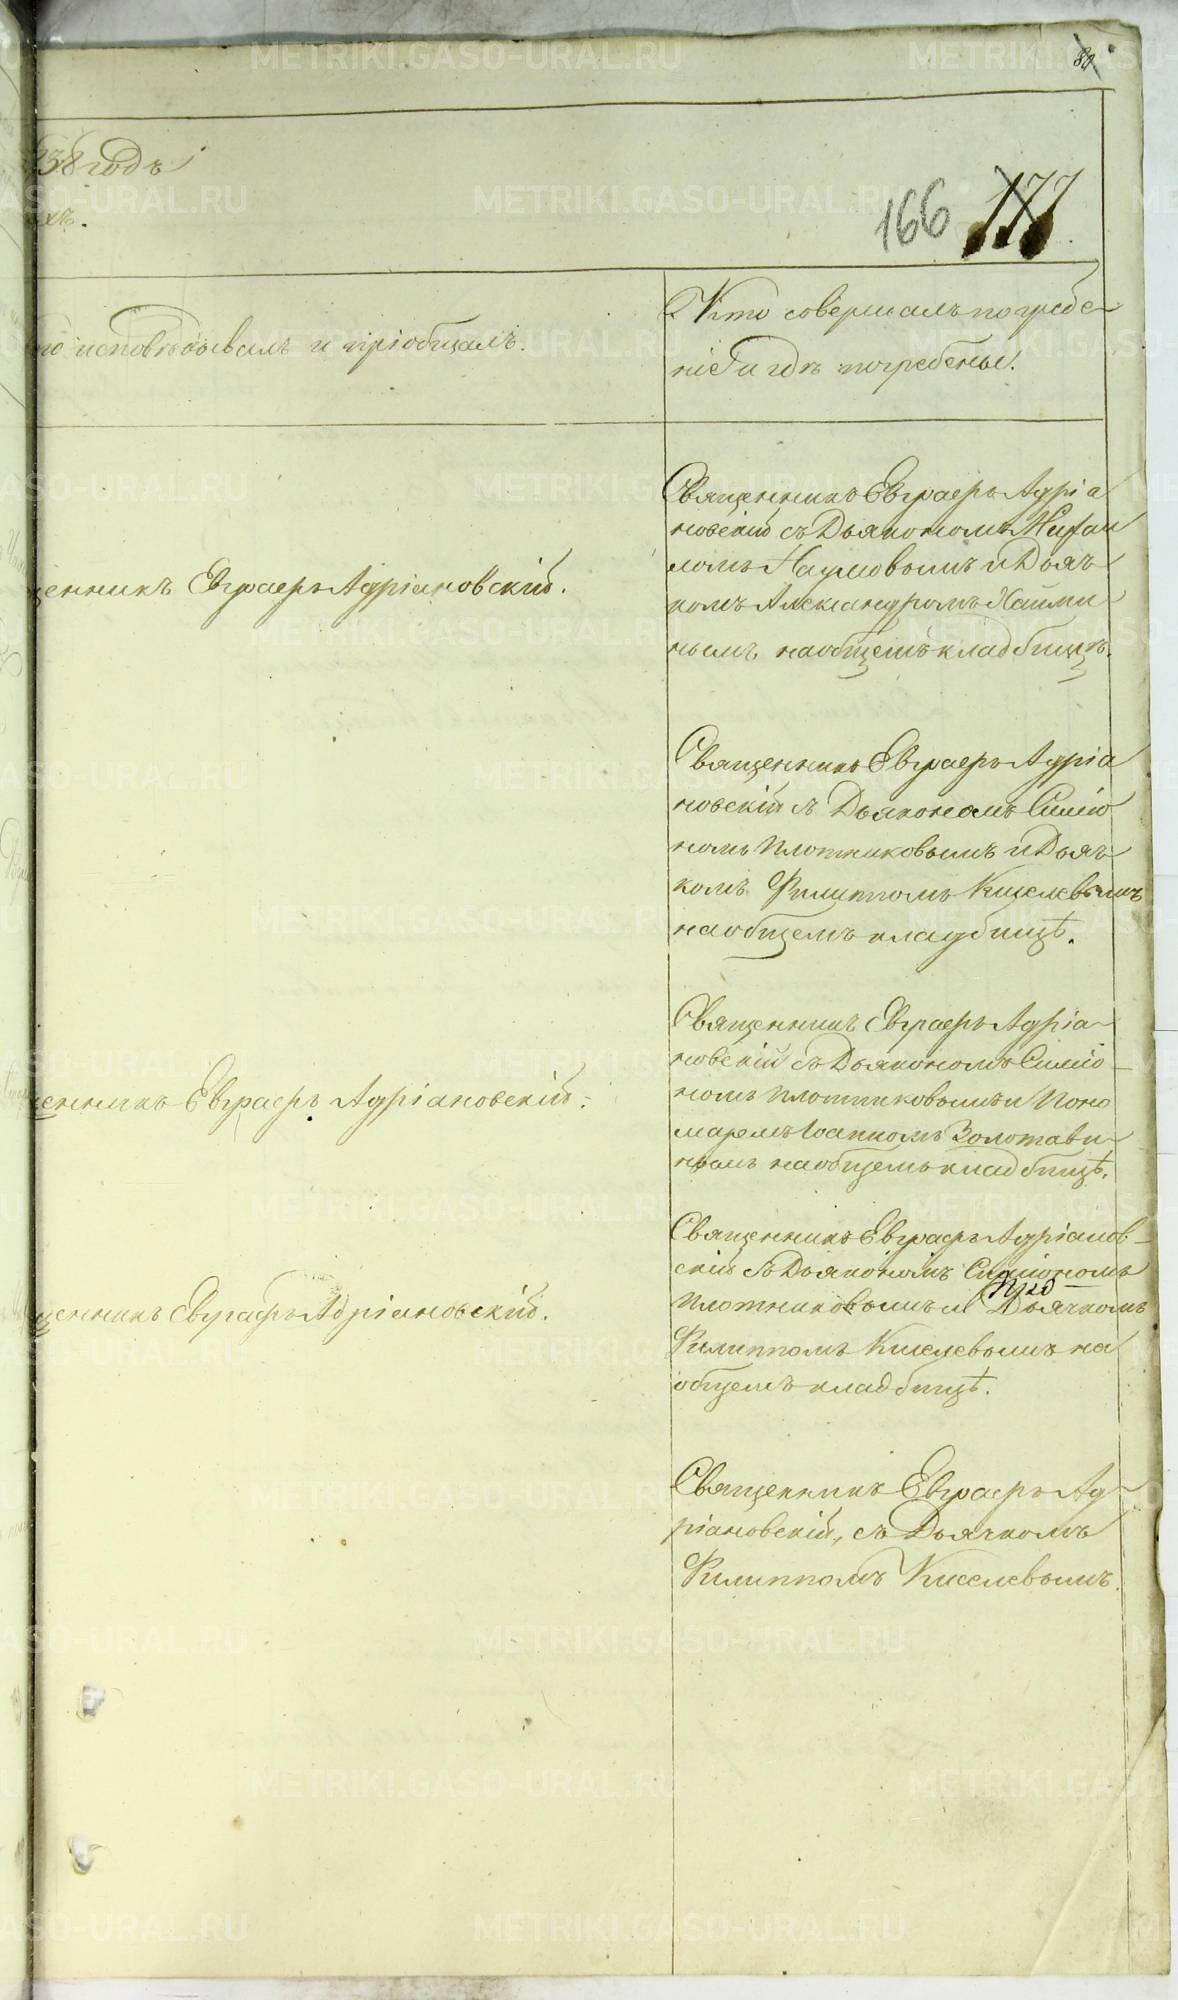 80
838 годъ
хъ.
166 177
то исповѣдывалъ и пріобщалъ.
Кто совершалъ погребе-
ніе и гдѣ погребены.
Священникъ Евграфъ Адріа
новскій съ Дьякономъ Михаи
ломъ Наумовымъ и Дьяч
комъ Александромъ
нымъ на общемъ кладбищѣ.
щенникъ Евграфъ Адріановскій.
Священникъ Евграфъ Адріа
новскій съ Дьякономъ Симіо
номъ Плотниковымъ и Дьяч
комъ Филиппомъ Киселевымъ
на общемъ кладбищѣ.
Священникъ Евграфъ Адріа-
новскій съ Дьякономъ Симіо-
номъ Плотниковымъ и Поно
маремъ Іоанномъ Золотави-
нымъ на общемъ кладбищѣ.
щенникъ Евграфъ Адріановскій.
Священникъ Евграфъ Адріанов-
скій съ Дьякономъ Симіономъ
Плотниковымъ и Дьячкомъ
Филиппомъ Киселевымъ на
общемъ кладбищѣ.
щенникъ Евграфъ Адріановскій.
Священникъ Евграфъ Ад-
ріановскій, съ Дьячкомъ
Филиппомъ Киселевымъ.
METRIKI.GASO-URAL.RU